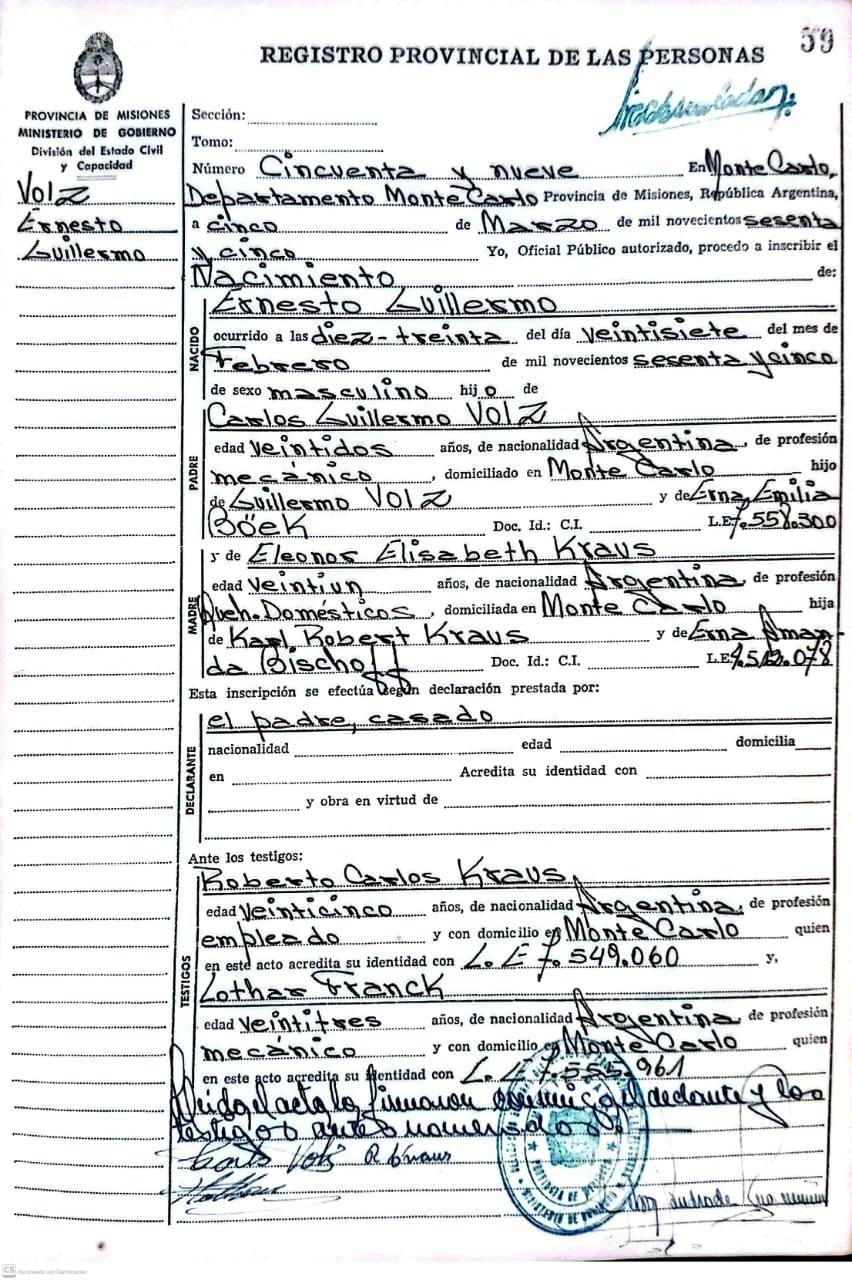 59
REGISTRO PROVINCIAL DE LAS PERSONAS
PROVINCIA DE MISIONES
MINISTERIO DE GOBIERNO
División del Estado Civil
y Capacidad
Volz
Ernesto
Guillermo
Sección:
Tomo:
Número Cincuenta y nueve En Monte Carlo,
Departamento Monte Carlo Provincia de Misiones, República Argentina,
a cinco de Marzo de mil novecientos sesenta
y cinco Yo, Oficial Público autorizado, procedo a inscribir el
Nacimiento de:
NACIDO
Ernesto Guillermo
ocurrido a las diez-treinta del día veintisiete del mes de
Febrero de mil novecientos sesenta y cinco
de sexo masculino hijo de
PADRE
Carlos Guillermo Volz
edad veintidos años, de nacionalidad Argentina, de profesión
mecánico, domiciliado en Monte Carlo hijo
de Guillermo Volz y de Erna Emilia
Böek Doc. Id.: C.I. L.E. 7.558.300
MADRE
y de Eleonor Elisabeth Kraus
edad veintiun años, de nacionalidad Argentina, de profesión
Queh. Domésticos, domiciliada en Monte Carlo hija
de Karl Robert Kraus y de Erna Aman-
da Bischoff Doc. Id.: C.I. L.E.
Esta inscripción se efectúa según declaración prestada por:
DECLARANTE
el padre, casado
nacionalidad edad domicilia
en Acredita su identidad con
y obra en virtud de
Ante los testigos:
TESTIGOS
Roberto Carlos Kraus
edad veinticinco años, de nacionalidad Argentina, de profesión
empleado y con domicilio en Monte Carlo quien
en este acto acredita su identidad con L.E 7.549.060 y,
Lothar Franck
edad veintitres años, de nacionalidad Argentina de profesión
mecánico y con domicilio en Monte Carlo quien
en este acto acredita su identidad con L.E 7.555.961
Leido el acta la firmaron conmigo el declarante y los
testigos antes nomensados.
Carlos Volz R Kraus
PROVINCIA DE MISIONES
CS Escaneado con CamScanner